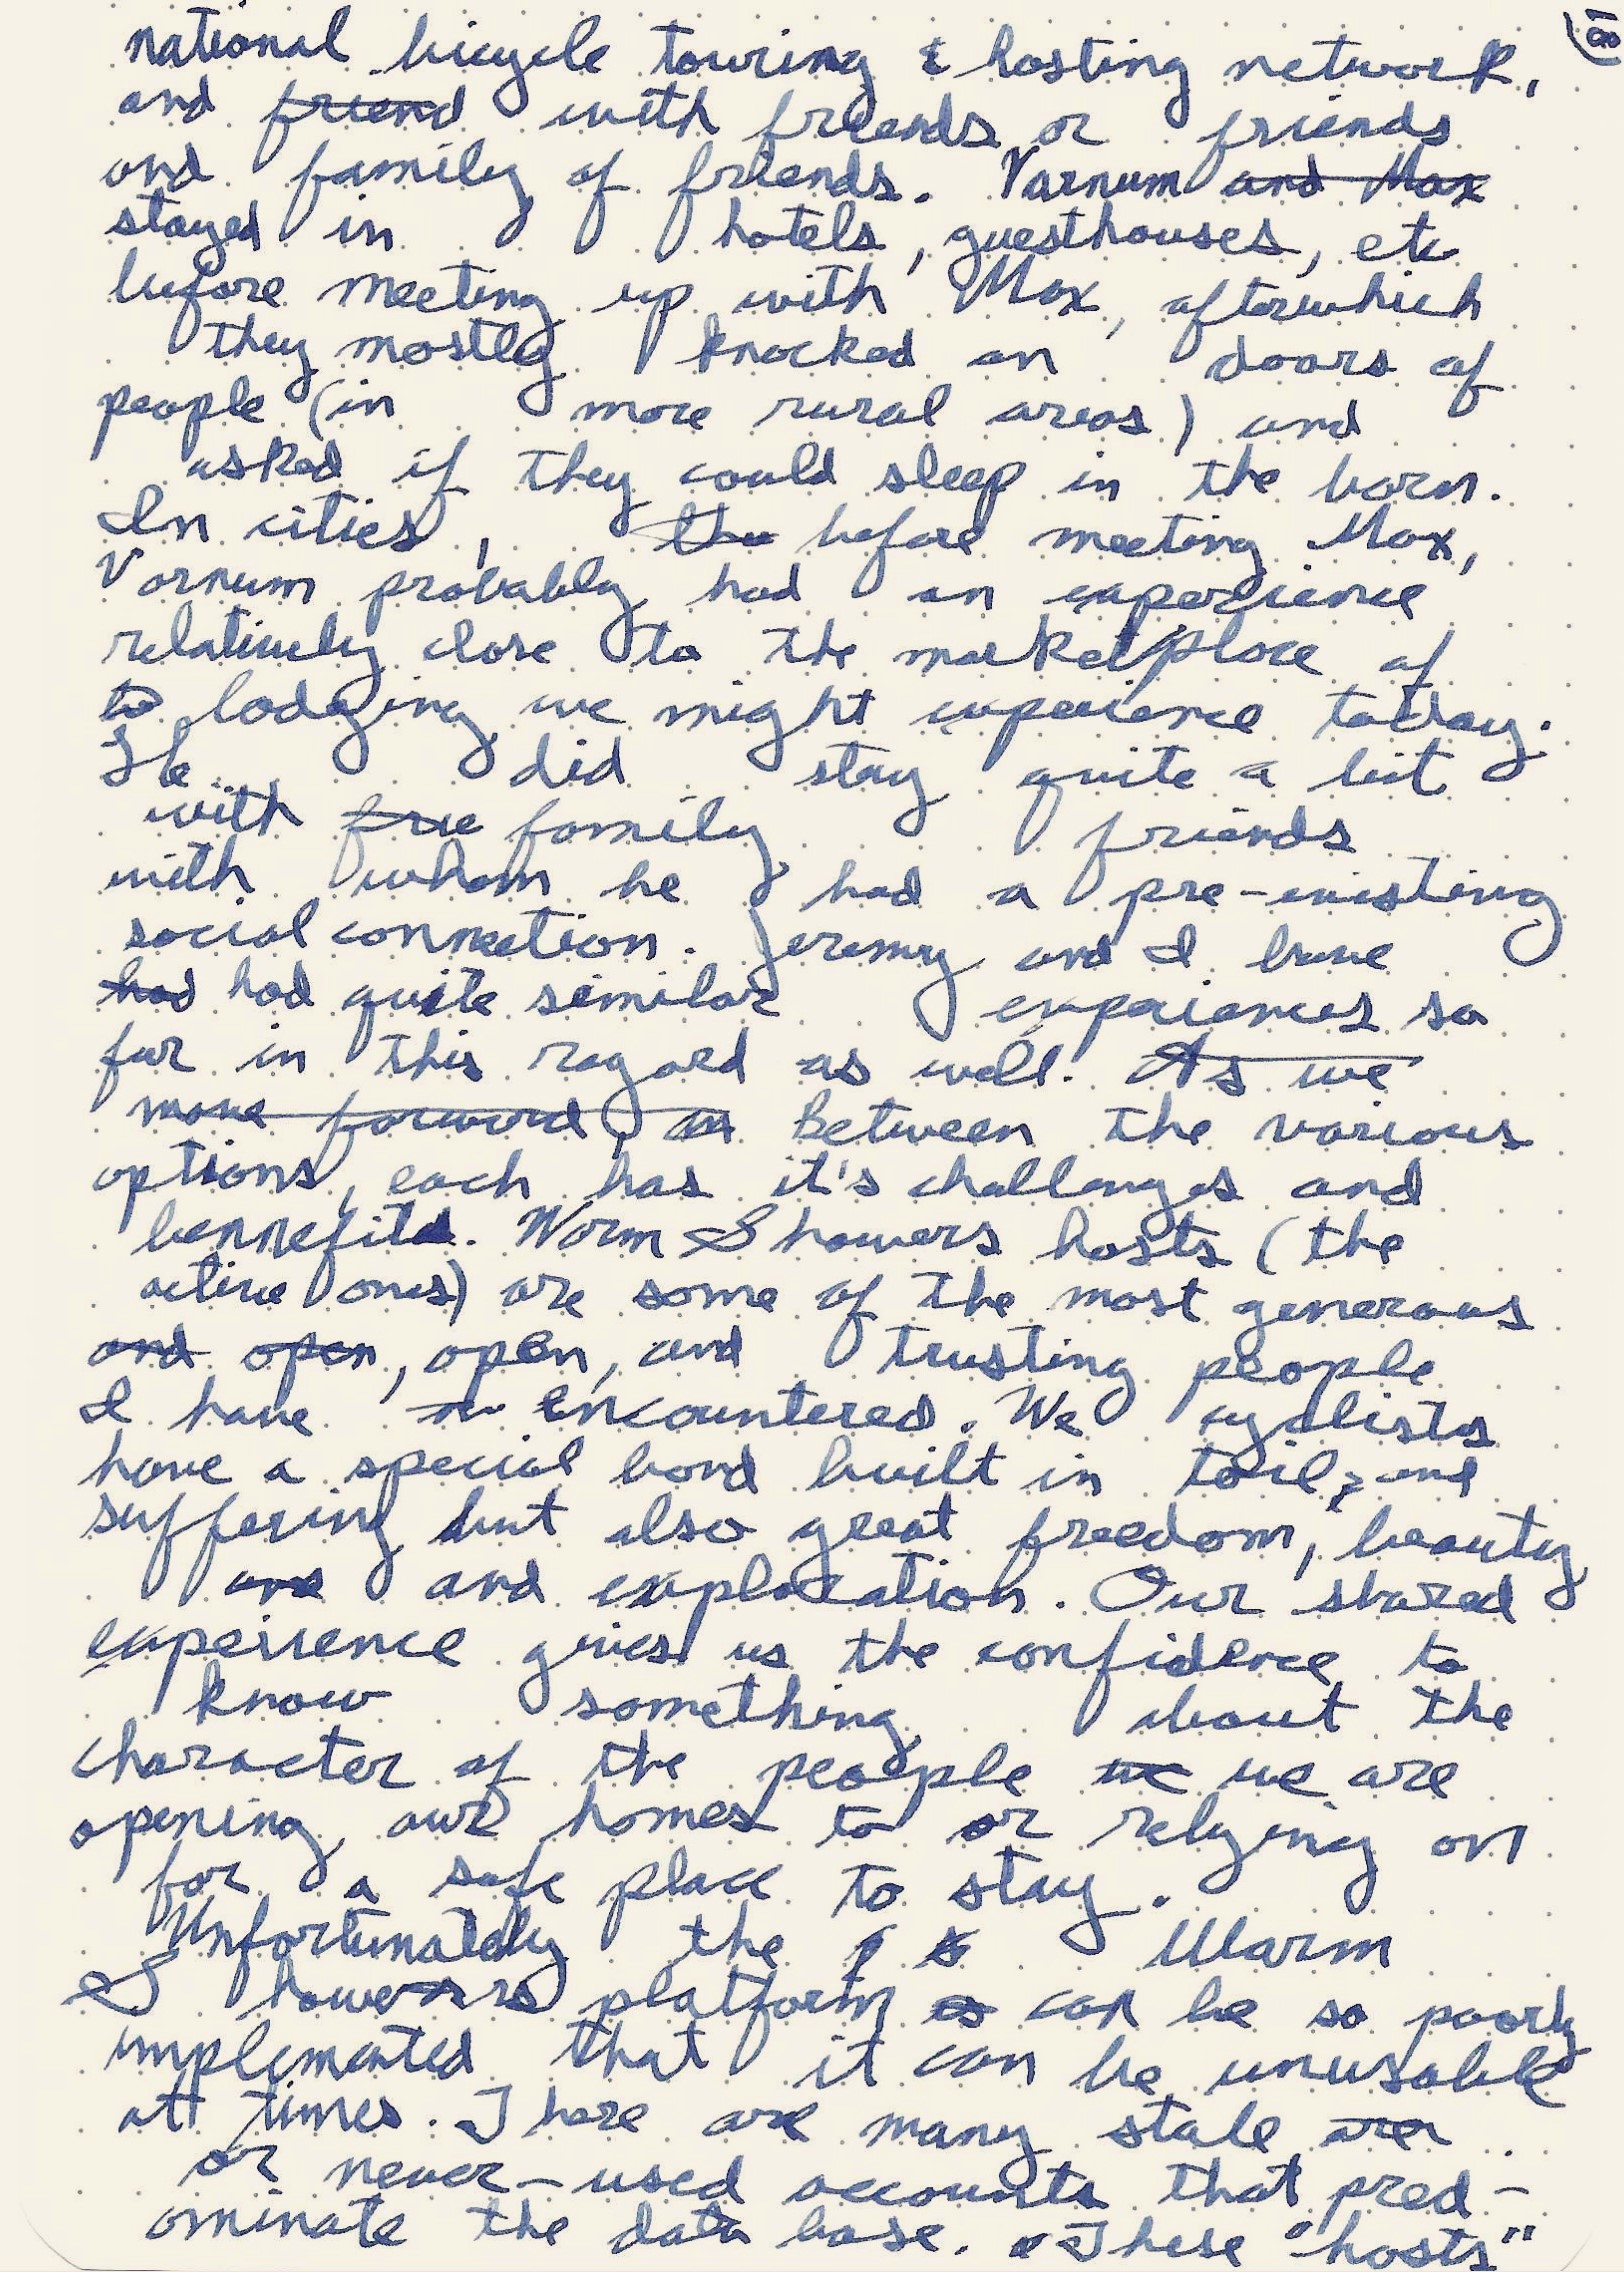 national bicycle touring & hosting network,
and friend with friends or friends
and family of friends. Varnum and Max
stayed in hotels, guesthouses, etc
before meeting up with Max, afterwhich
they mostly knocked on doors of
people (in more rural areas) and
asked if they could sleep in the barn.
In cities, the before meeting Max,
Varnum probably had an experience
relatively close to the marketplace of
to lodging we might experience today.
He did stay quite a bit
with frie family friends
with whom he had a pre-existing
social connection. Jeremy and I have
had had quite similar experiences so
far in this regard as well. As we
move forward, Between the various
options, each has it's challenges and
bennefits. Warm Showers hosts (the
active ones) are some of the most generous
and open, open, and trusting people
I have encountered. We cyclists
have a special bond built in toil, and
suffering but also great freedom, beauty
and and exploration. Our shared
experience gives us the confidence to
know something about the
character of the people we we are
opening our homes to or relying on
for a safe place to stay.
Unfortunately the Warm
Showers platform can be so poorly
implemented that it can be unusable
at times. There are many stale are
or never-used accounts that pred-
ominate the data base. These "hosts"